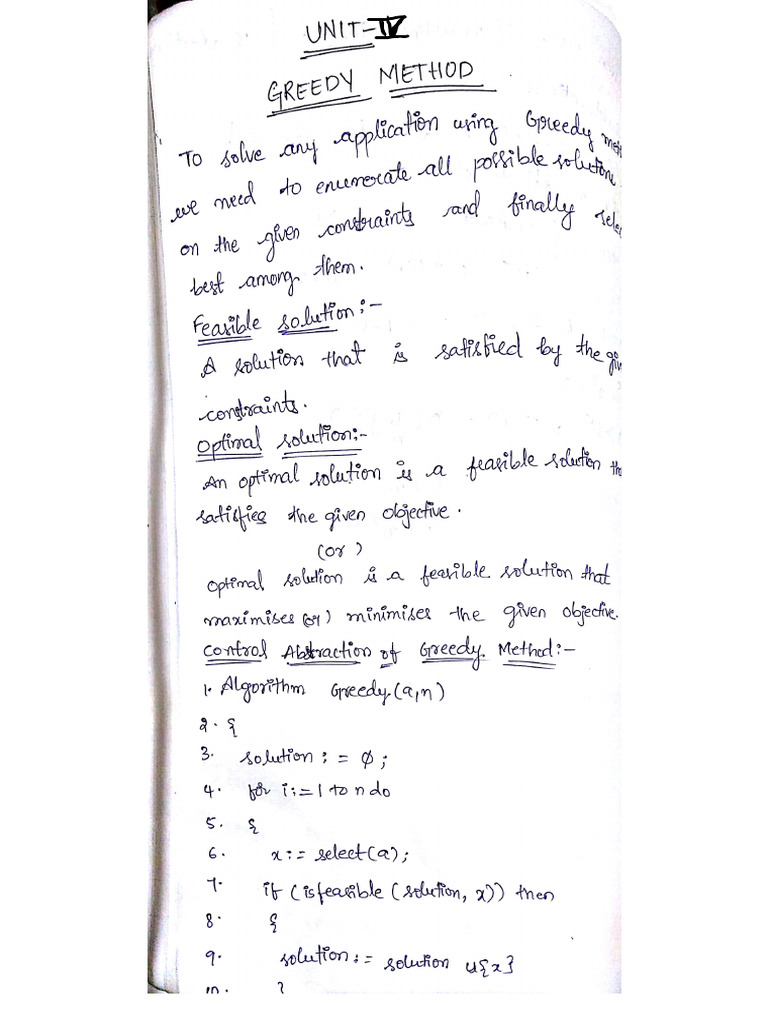 UNIT-IV
GREEDY METHOD
To solve any application using Greedy
we need to enumerate all possible solutions
on the given constraints and finally
best among them.
Feasible solution:-
A solution that is satisfied by the
constraints.
Optimal solution:-
An optimal solution is a feasible solution
satisfies the given objective.
(or)
Optimal solution is a feasible solution that
maximises (or) minimises the given objective.
Control Abstraction of Greedy Method:-
1. Algorithm Greedy(a,n)
2. {
3. solution := ∅;
4. for i:=1 to n do
5. {
6. x:= select(a);
7. if (isfeasible (solution, x)) then
8. {
9. solution:= solution U{x}
10. }